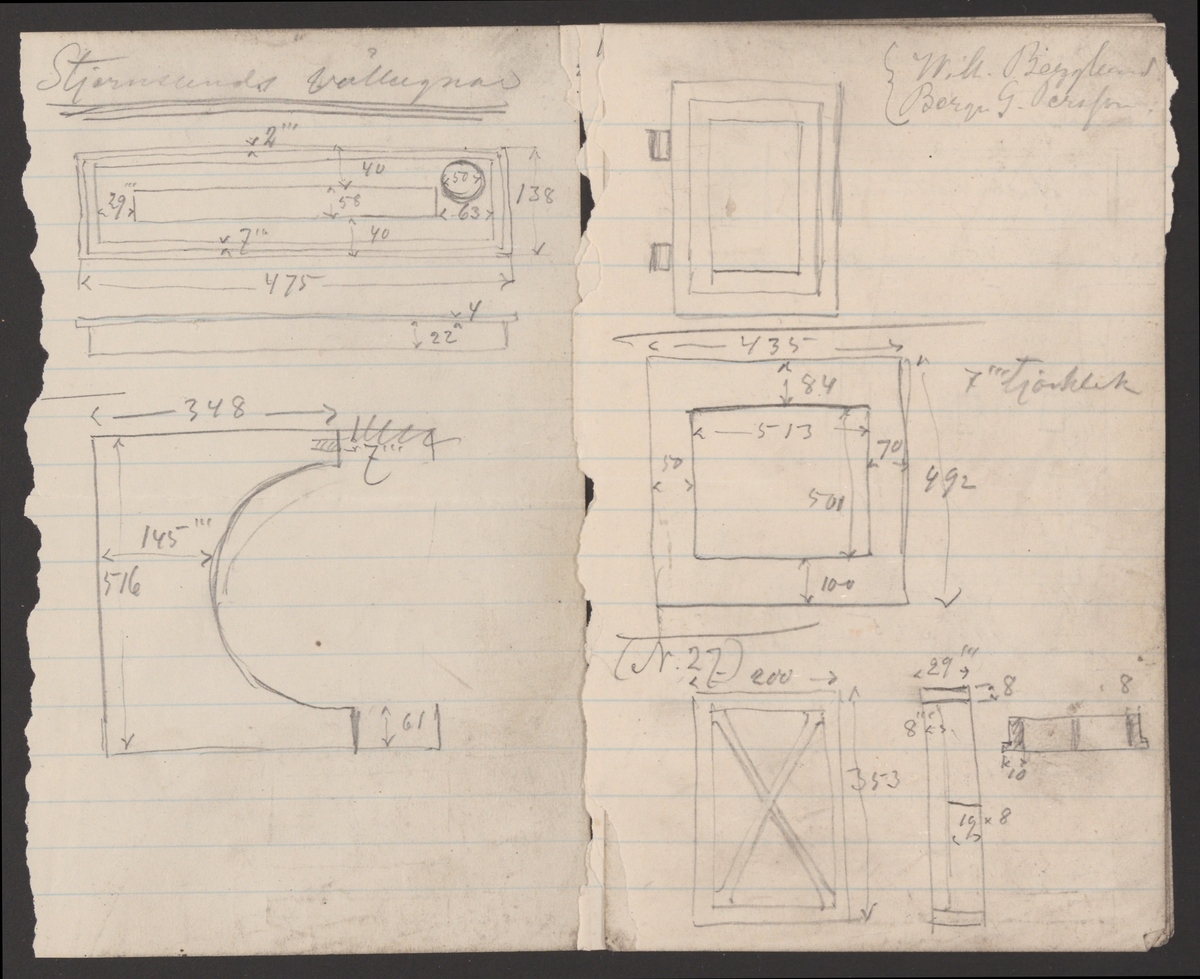 Stjernsunds vällugnar
2'''
40
50
29'''
58
63
138
7'''
40
475
4
22
348
7'''
145'''
516
61
Wilh. Berglund
Bergn. G. Persson.
435
84
7''' tjocklek
513
50
70
501
492
100
(N. 27)
200
353
29'''
8
8'''
19 × 8
8
10